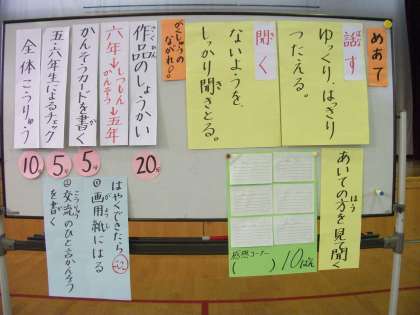 めあて
話す
ゆっくり、はっきり
つたえる。
聞く
ないようを、
しっかり聞きとる。
あいての方を見て聞く
ほう
がくしゅうの
ながれ!!
作品のしょうかい
さくひん
20分
六年→しつもん かんそう→五年
かんそうカードを書く
5分
五・六年生によるチェック
5分
全体こうりゅう
10分
はやくできたら
①画用紙にはる
②交流のひと言かんそう
を書く
感想コーナー
( ) 10はん